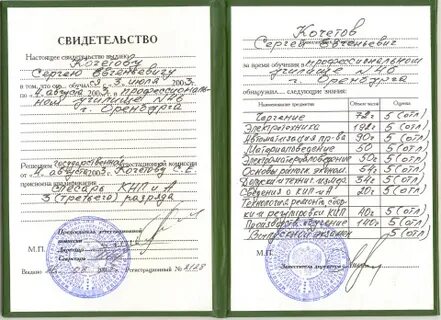 СВИДЕТЕЛЬСТВО
Настоящее свидетельство выдано
Кочетову
Сергею Евгеньевичу
в том, что он обучался с 3 июля 2003 г.
по 4 августа 2003 г. в профессиональ-
ном училище №46
г. Оренбурга
Решением Государственной аттестационной комиссии
от 4 августа 2003 Кочетову С.Е.
присвоена квалификация
слесарь КИП и А
3 (третьего) разряда
Председатель аттестационной
комиссии
Директор
Секретарь
М.П.
Выдано
Регистрационный №
Кочетов
Сергей Евгеньевич
за время обучения в профессиональном
училище №46
г. Оренбурга
обнаружил следующие знания:
Наименование предметов Объем часов Оценка
Черчение 72ч 5 (отл)
Электротехника 5 (отл)
Автоматизация пр-ва 90ч 5 (отл)
Материаловедение 50 5 (отл)
Электроматериаловедение 50ч 5 (отл)
Основы рыноч. эконом. 54ч 5 (отл)
Допуски и технич. измер. 5 (отл)
Сведения о КИП и А 20ч 5 (отл)
Технология ремонта, сбор-
ки и регулировки КИП 40ч 5 (отл)
Производств. обучение 100ч 5 (отл)
Выпускной экзамен 5 (отл)
М.П.
Заместитель директора